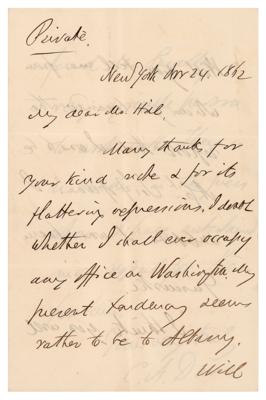 Private.
New York Nov 24. 1862
My dear Mr. Hill,
Many thanks for
your kind note & for its
flattering expressions. I doubt
whether I shall ever occupy
any office in Washington. My
present tendency seems
rather to be to Albany.
Will